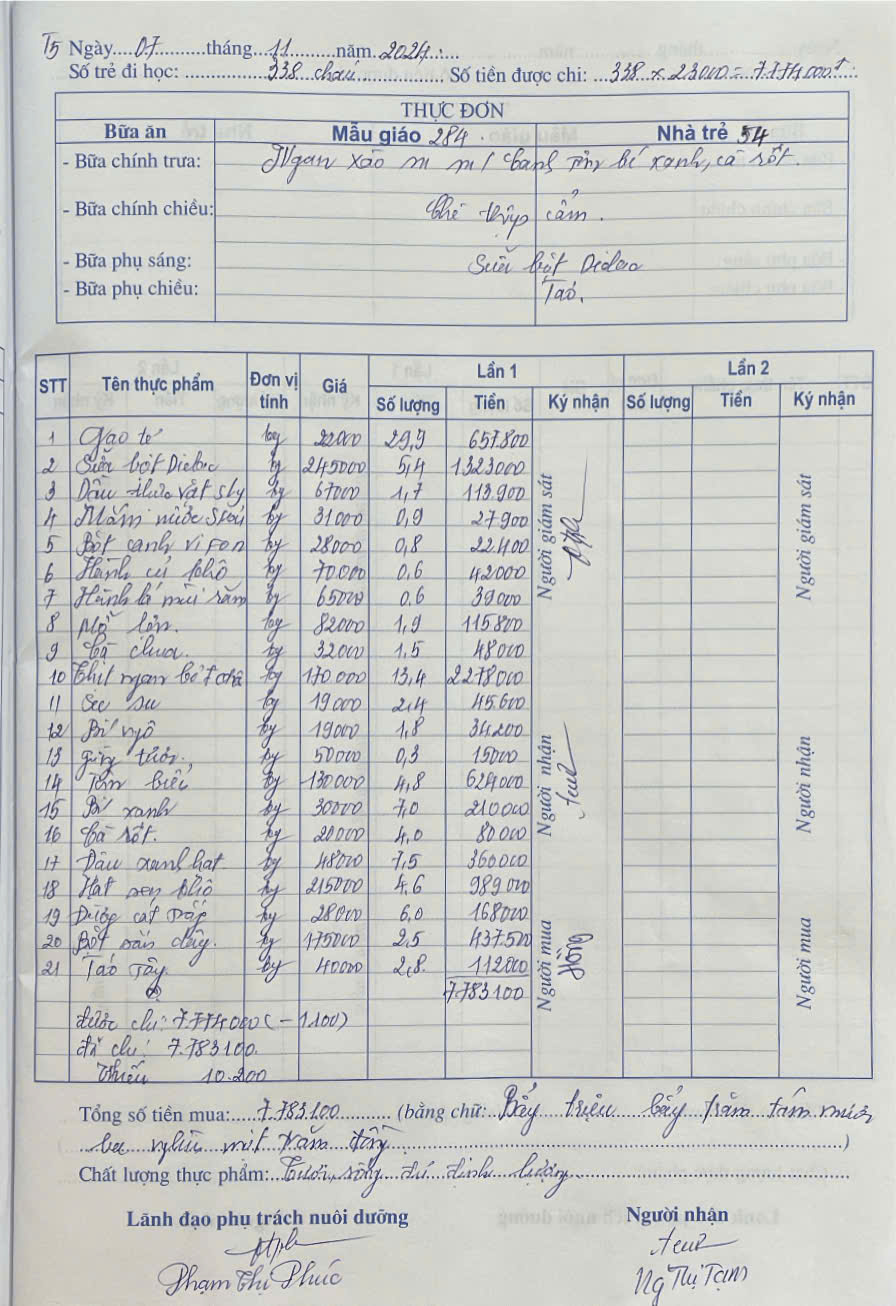 T5 Ngày....07.........tháng...11........năm..2024.:
Số trẻ đi học: ...............338 cháu................ Số tiền được chi: ...338 x 23000 = 7.774000đ.
THỰC ĐƠN
Bữa ăn Mẫu giáo 284 . Nhà trẻ 54
- Bữa chính trưa: Ngan xào m m / Canh tôm bí xanh, cà rốt.
- Bữa chính chiều: Chè thập cẩm .
- Bữa phụ sáng: Sữa bột Dielac
- Bữa phụ chiều: Táo.
STT Tên thực phẩm Đơn vị tính Giá Lần 1 Lần 2
Số lượng Tiền Ký nhận Số lượng Tiền Ký nhận
1 Gạo tẻ kg 22000 29,9 657.800
2 Sữa bột Dielac kg 245000 5,4 1323000
3 Dầu thực vật sly kg 67000 1,7 113.900
4 Mắm nước kg 31000 0,9 27.900
5 Bột canh vifon kg 28000 0,8 22400
6 Hành củ khô kg 70.000 0,6 42000
7 Hành lá mùi răm kg 65000 0,6 39000
8 Mỡ lợn. kg 82000 1,9 115800
9 Cà chua. kg 32000 1,5 48000
10 Thịt ngan kg 170.000 13,4 2278000
11 Su su kg 19000 2,4 45.600
12 Bí ngô kg 19000 1,8 34.200
13 Gừng tươi, kg 50000 0,3 15000
14 Tôm biển kg 130.000 4,8 624000
15 Bí xanh kg 30000 7,0 210000
16 Cà rốt. kg 20000 4,0 80000
17 Đậu xanh hạt kg 48000 7,5 360000
18 Hạt sen khô kg 215000 4,6 989000
19 Đường cát kg 28000 6,0 168000
20 Bột sắn dây. kg 175000 2,5 437.500
21 Táo tây kg 40000 2,8. 112000
7.783100
Được chi: 7.774000 (-1.100)
đã chi: 7.783100.
Thiếu 10.200
Người giám sát
Người nhận
Người mua
Hồng
Người giám sát
Người nhận
Người mua
Tổng số tiền mua:.....7.783100........... (bằng chữ: Bảy triệu bảy trăm tám mươi
(...ba nghìn một trăm đồng...)
Chất lượng thực phẩm:..Tươi, sống đủ định lượng
Lãnh đạo phụ trách nuôi dưỡng Người nhận
Phạm Thị Phúc Ng Thị Tạm